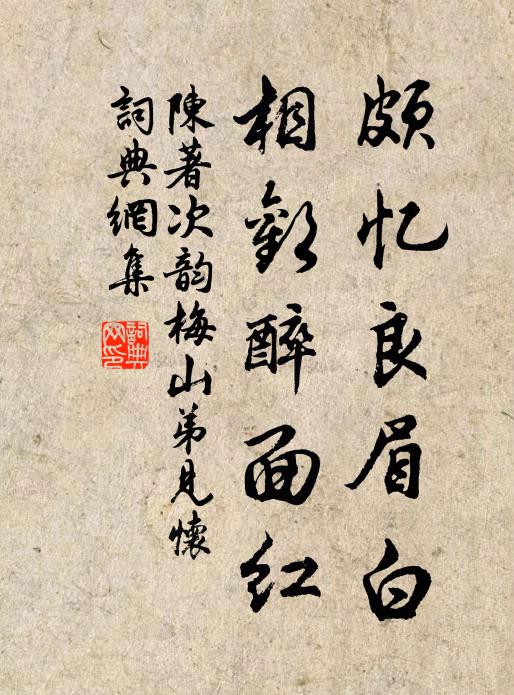 頗忆良眉白
相歡醉面红
陳著次韵梅山弟見懷
詞典網集
詞典网印